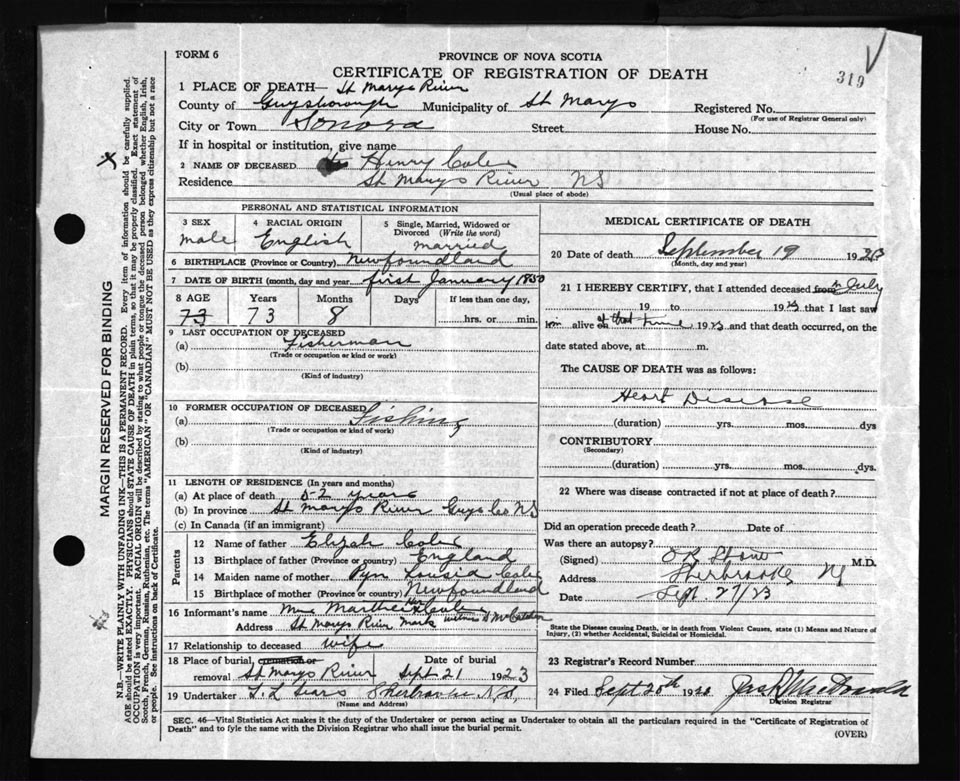 FORM 6
PROVINCE OF NOVA SCOTIA
CERTIFICATE OF REGISTRATION OF DEATH
319
1 PLACE OF DEATH— St Marys River
County of Guysborough Municipality of St Marys Registered No.
(For use of Registrar General only)
City or Town Sonora Street House No.
If in hospital or institution, give name
2 NAME OF DECEASED Henry
Residence St Marys River NS
(Usual place of abode)
MARGIN RESERVED FOR BINDING
N.B.—WRITE PLAINLY WITH UNFADING INK—THIS IS A PERMANENT RECORD. Every item of information should be carefully supplied.
AGE should be stated EXACTLY. PHYSICIANS should STATE CAUSE OF DEATH in plain terms, so that it may be properly classified. Exact statement of
OCCUPATION is very important. RACIAL ORIGIN will be described by stating to what people or tongue the deceased person belonged whether English, Irish,
Scotch, French, German, Russian, Ruthenian, etc. The terms "AMERICAN" OR "CANADIAN" MUST NOT BE USED as they express citizenship but not a race
of people. See instructions on back of Certificate.
PERSONAL AND STATISTICAL INFORMATION
3 SEX 4 RACIAL ORIGIN 5 Single, Married, Widowed or
Divorced (Write the word)
male English married
6 BIRTHPLACE (Province or Country) Newfoundland
7 DATE OF BIRTH (month, day and year first January 1850
8 AGE Years Months Days If less than one day,
73 73 8 hrs. or min.
9 LAST OCCUPATION OF DECEASED
(a) Fisherman
(Trade or occupation or kind or work)
(b)
(Kind of industry)
10 FORMER OCCUPATION OF DECEASED
(a) Fishing
(Trade or occupation or kind of work)
(b)
(Kind of industry)
11 LENGTH OF RESIDENCE (In years and months)
(a) At place of death 52 years
(b) In province St Marys River Guys Co NS
(c) In Canada (if an immigrant)
Parents
12 Name of father Elizah
13 Birthplace of father (Province or country) England
14 Maiden name of mother
15 Birthplace of mother (Province or country) Newfoundland
16 Informant's name Martha
Address St Marys River mark witness
17 Relationship to deceased wife
18 Place of burial, cremation or Date of burial
removal St Marys River Sept 21 1923
19 Undertaker Sherbrooke N.S.
(Name and Address)
MEDICAL CERTIFICATE OF DEATH
20 Date of death September 19 1923
(Month, day and year)
21 I HEREBY CERTIFY, that I attended deceased from in July
19 to 1923 that I last saw
him alive on at that time 1923 and that death occurred, on the
date stated above, at m.
The CAUSE OF DEATH was as follows:
Heart Disease
(duration) yrs. mos. dys
CONTRIBUTORY
(Secondary)
(duration) yrs. mos. dys.
22 Where was disease contracted if not at place of death?
Did an operation precede death? Date of
Was there an autopsy?
(Signed) M.D.
Address Sherbrooke NS
Date Sept. 27/23
State the Disease causing Death, or in death from Violent Causes, state (1) Means and Nature of
Injury, (2) whether Accidental, Suicidal or Homicidal.
23 Registrar's Record Number
24 Filed Sept 20th 19 MacDonald
Division Registrar
SEC. 46—Vital Statistics Act makes it the duty of the Undertaker or person acting as Undertaker to obtain all the particulars required in the "Certificate of Registration of
Death" and to fyle the same with the Division Registrar who shall issue the burial permit.
(OVER)